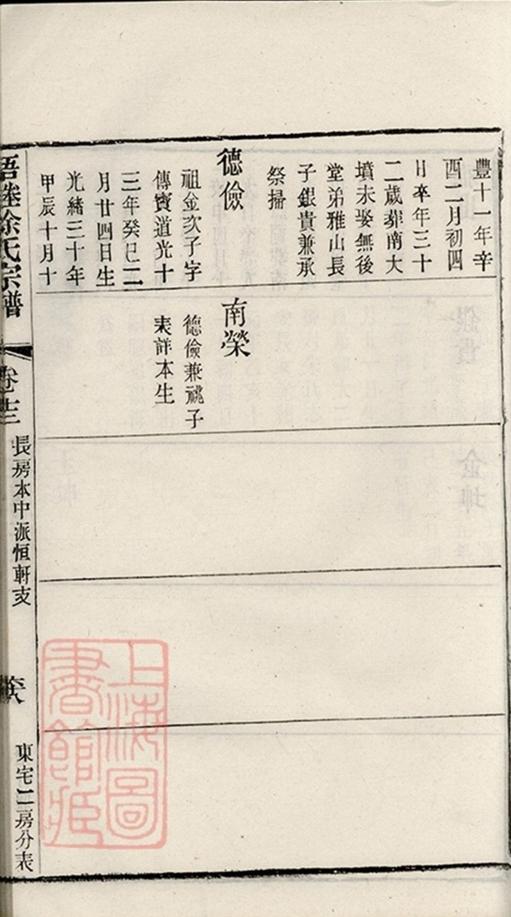 豐十一年辛
酉二月初四
日卒年三十
二歲葬南大
墳未娶無後
堂弟雅山長
子銀貴兼承
祭掃
德儉
祖金次子字
傳寶道光十
三年癸巳二
月廿四日生
光緒三十年
甲辰十月十
南榮
德儉兼祧子
表詳本生
徐氏宗譜
卷
長房本中派恒軒支
東宅二房分表
上海圖
書館藏